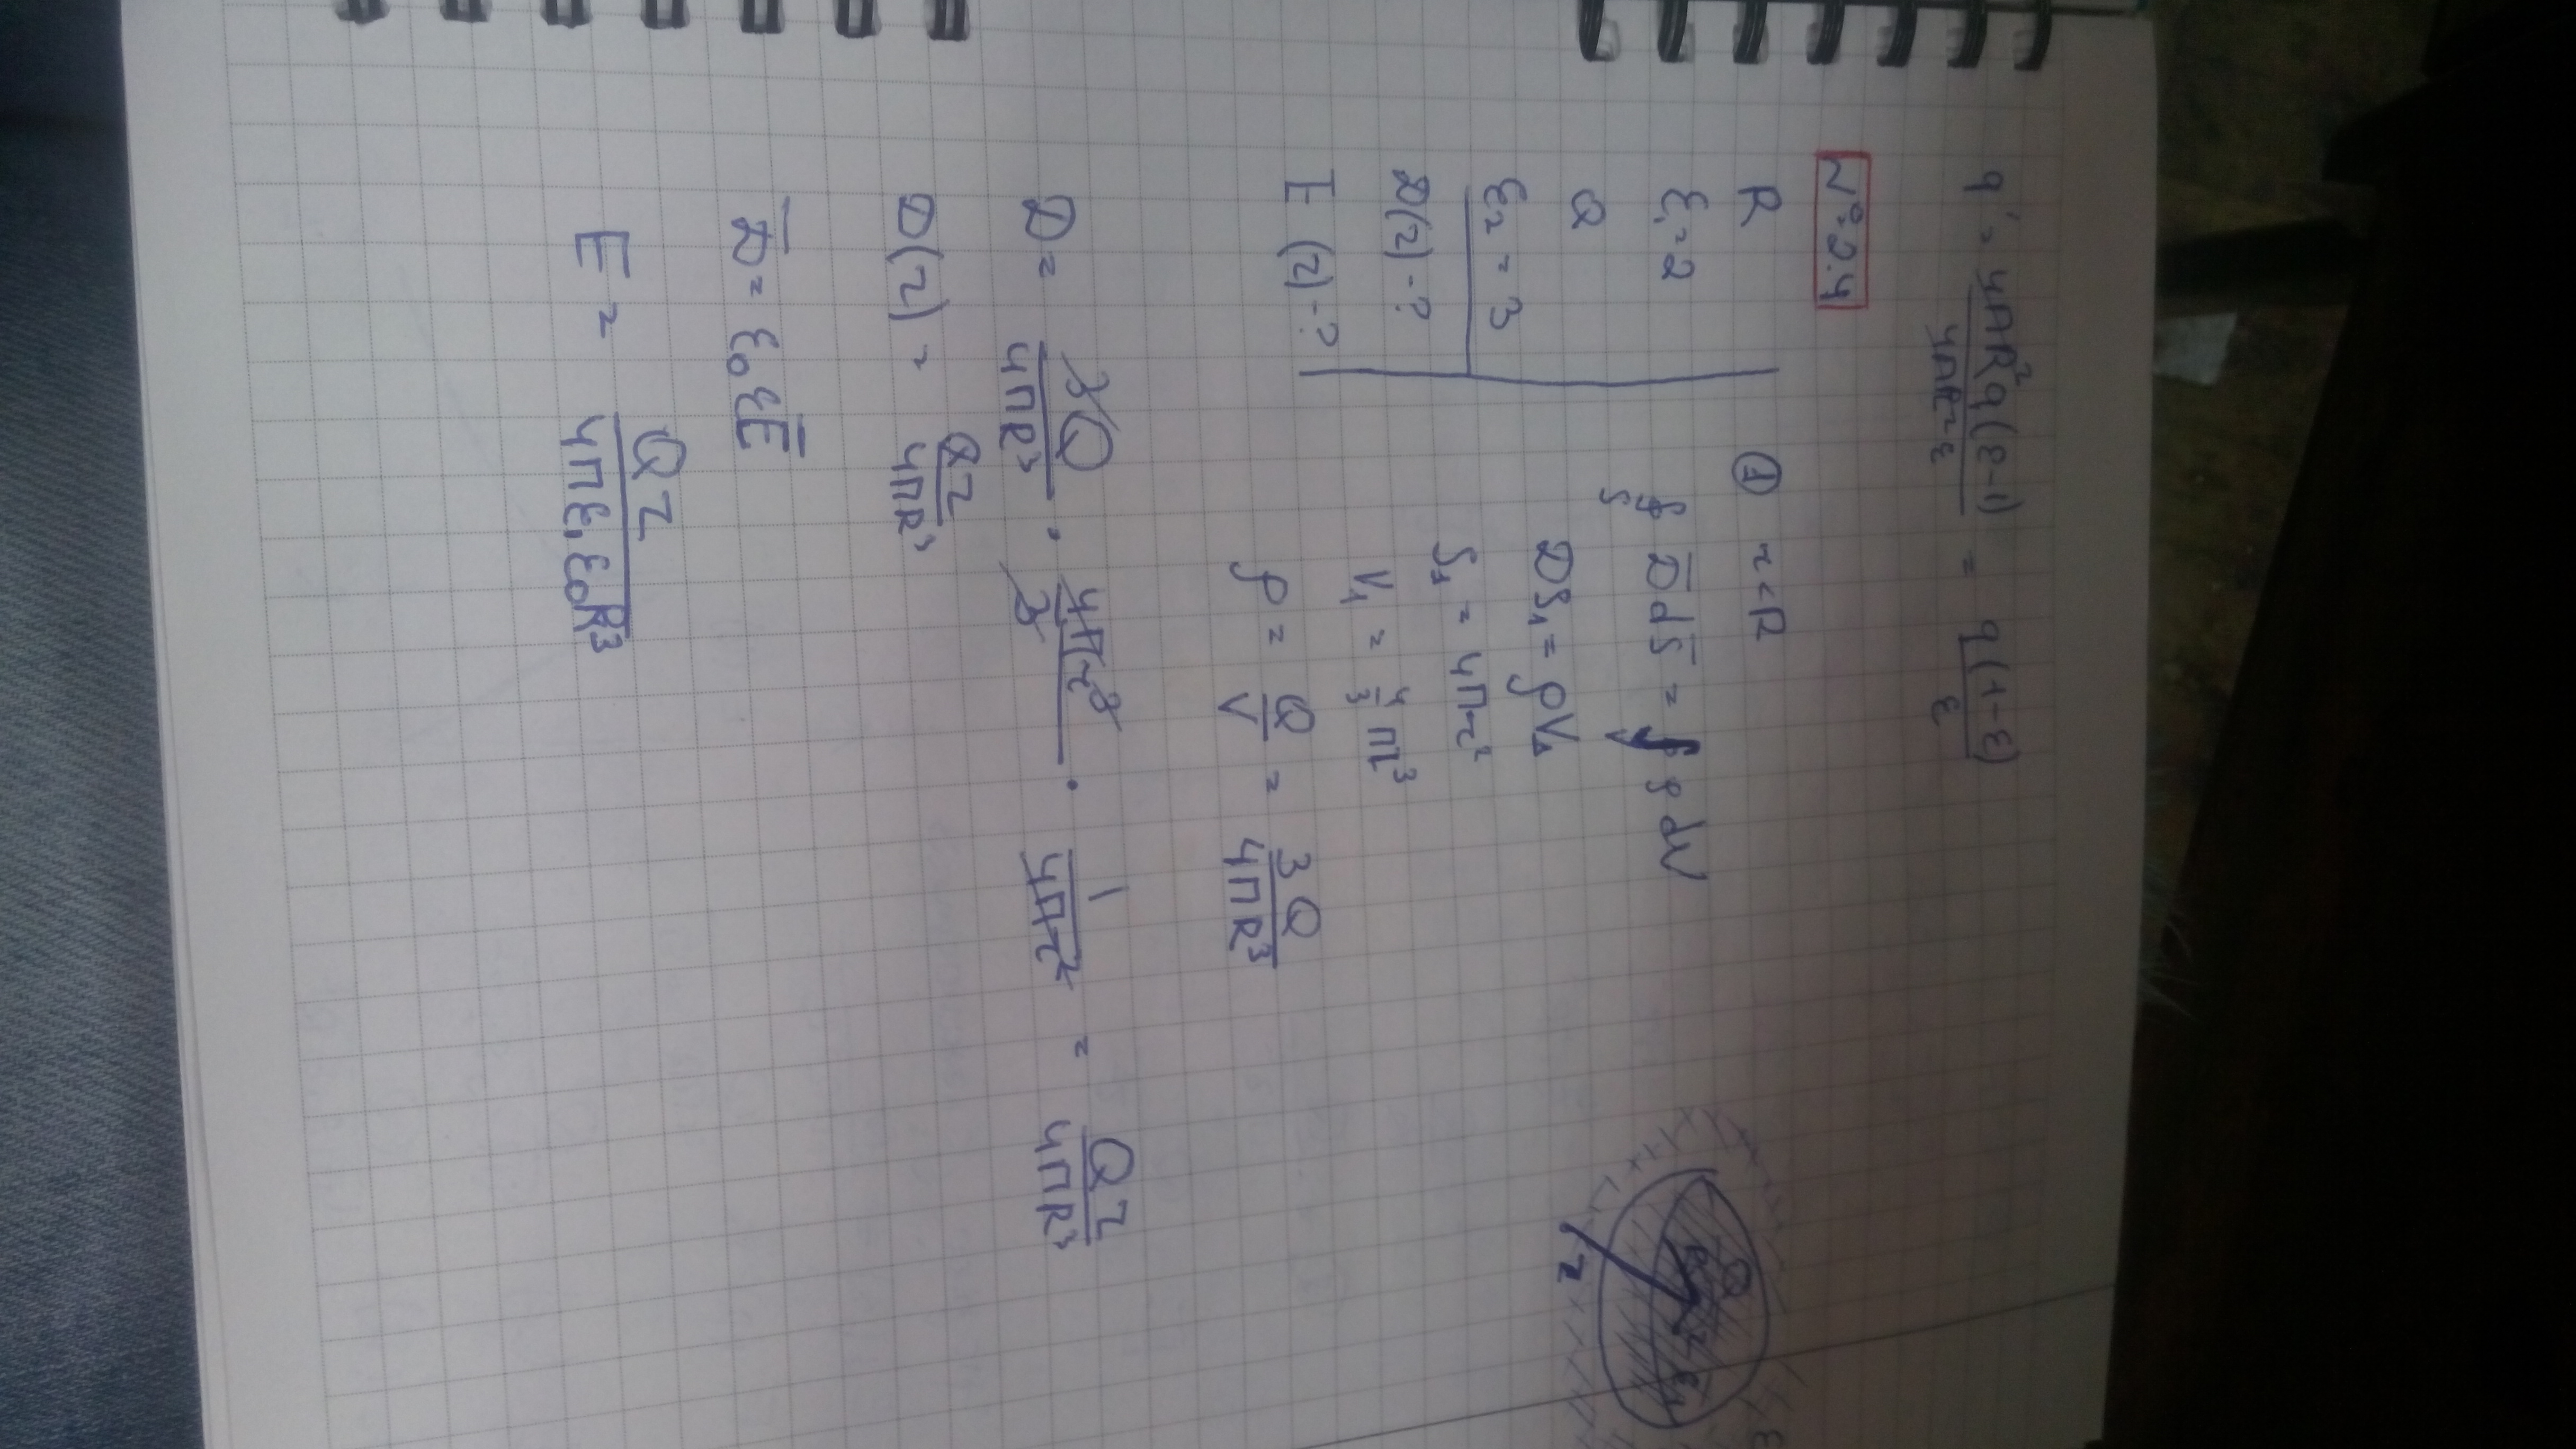 q' = 4ПR²q(ε-1) / 4ПR²ε = q(1-ε) / ε
№ 2.4
R
ε₁=2
Q
ε₂ = 3
D(r) - ?
E (r) - ?
① r<R
∮ₛ D̅dS̅ = ∫ᵥ ρ dV
DS₁ = ρV₁
S₁ = 4Пr²
V₁ = 4/3 Пr³
ρ = Q/V = 3Q / 4ПR³
D = 3Q / 4ПR³ · 4Пr³ / 3 · 1 / 4Пr² = Qr / 4ПR³
D(r) = Qr / 4ПR³
D̅ = ε₀εE̅
E = Qr / 4Пε₁ε₀R³
Q
R
ε₁
r